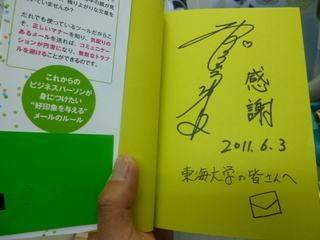 いませんか？
だれでも使っているツールだからこ
そ、正しいマナーを知り、気配りの
あるメールを送れば、コミュニケー
ションが円滑になり、無駄なトラブ
ルを避けることができるのです。
これからの
ビジネスパーソンが
身につけたい
“好印象を与える”
メールのルール
感謝
2011.6.3
東海大学の皆さんへ